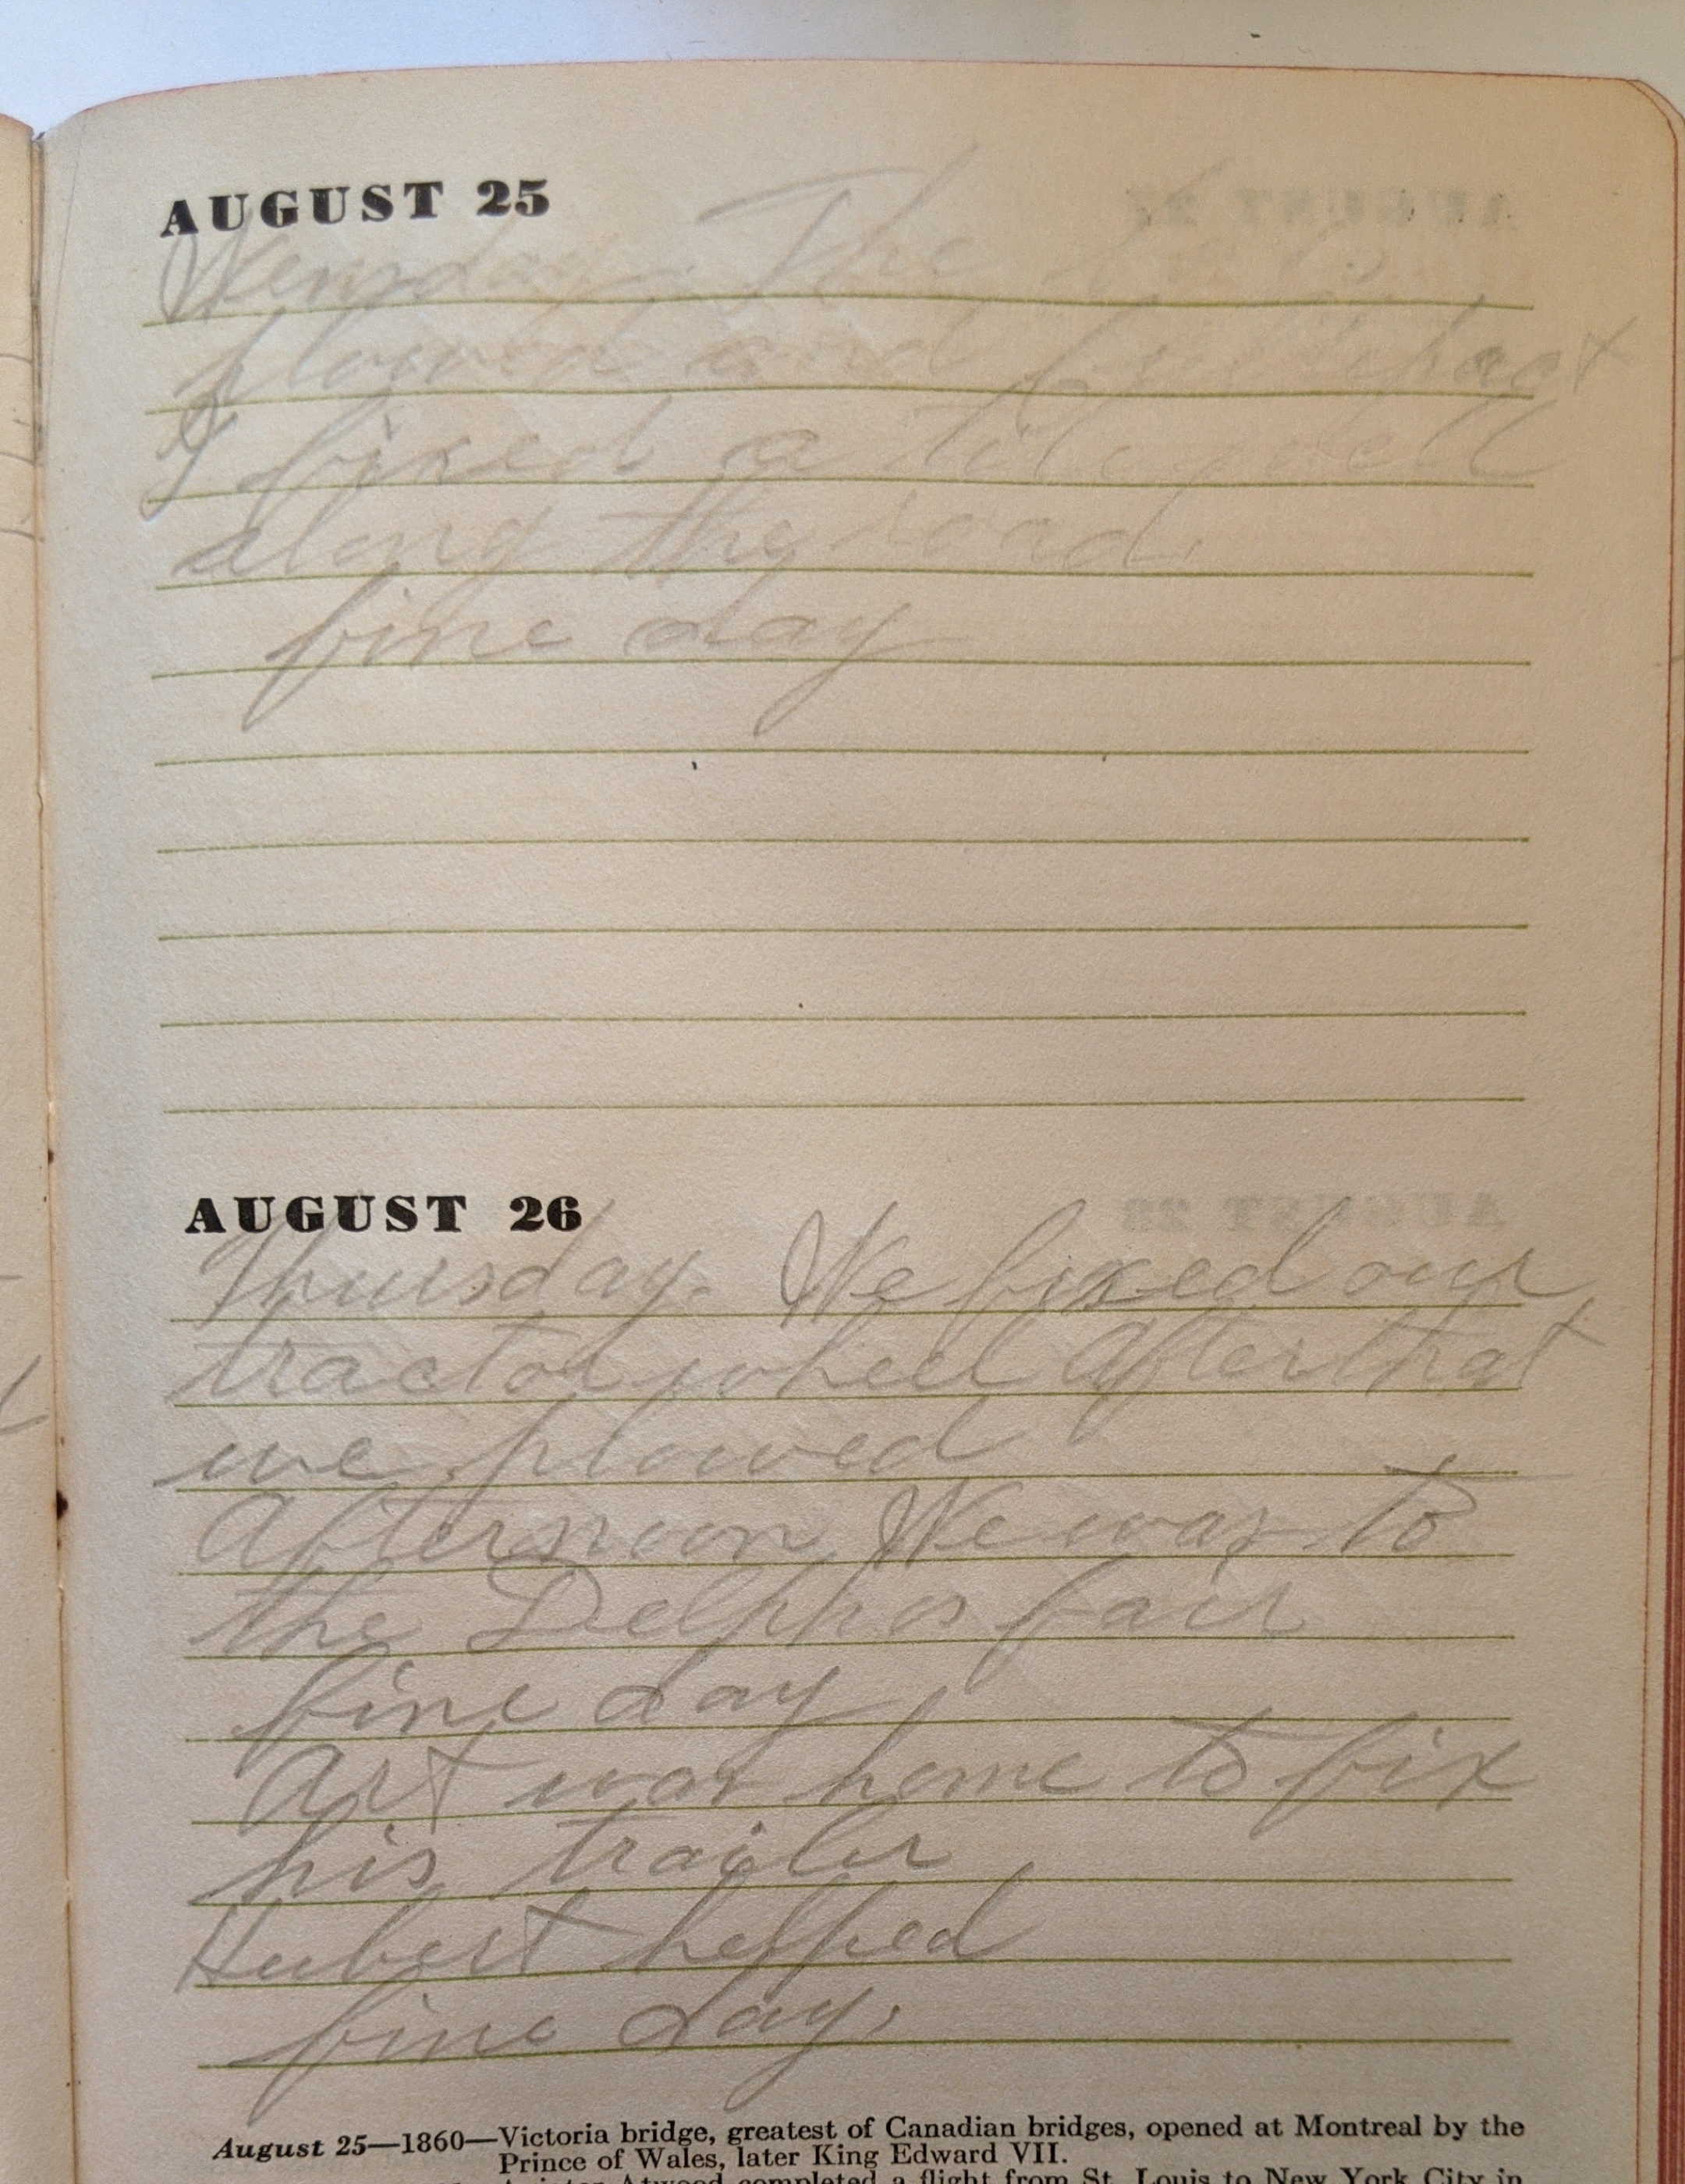 AUGUST 25
Wensday. The
plowed and
I fixed a tile
along the road.
fine day
AUGUST 26
Thursday. We fixed our
tractor wheel After that
we plowed
Afternoon We was to
the Delphos fair
fine day
Art was home to fix
his trailer
Hubert helped
fine day.
August 25—1860—Victoria bridge, greatest of Canadian bridges, opened at Montreal by the
Prince of Wales, later King Edward VII.
Atwood completed a flight from St. Louis to New York City in